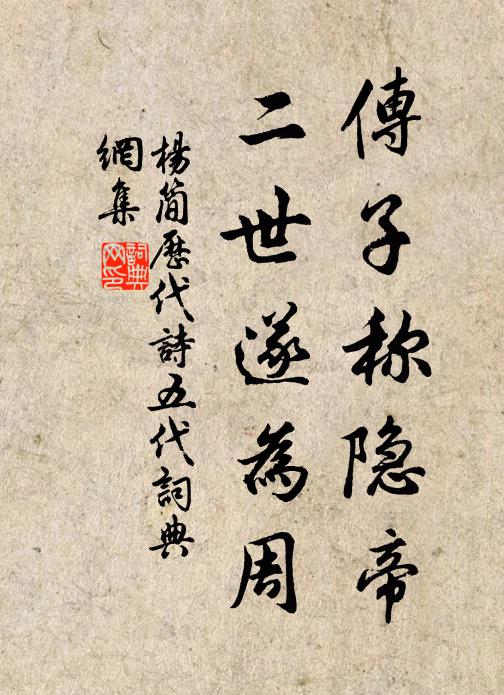 傳子称隐帝
二世遂為周
楊簡歷代詩五代詞典
網集
詞典网印